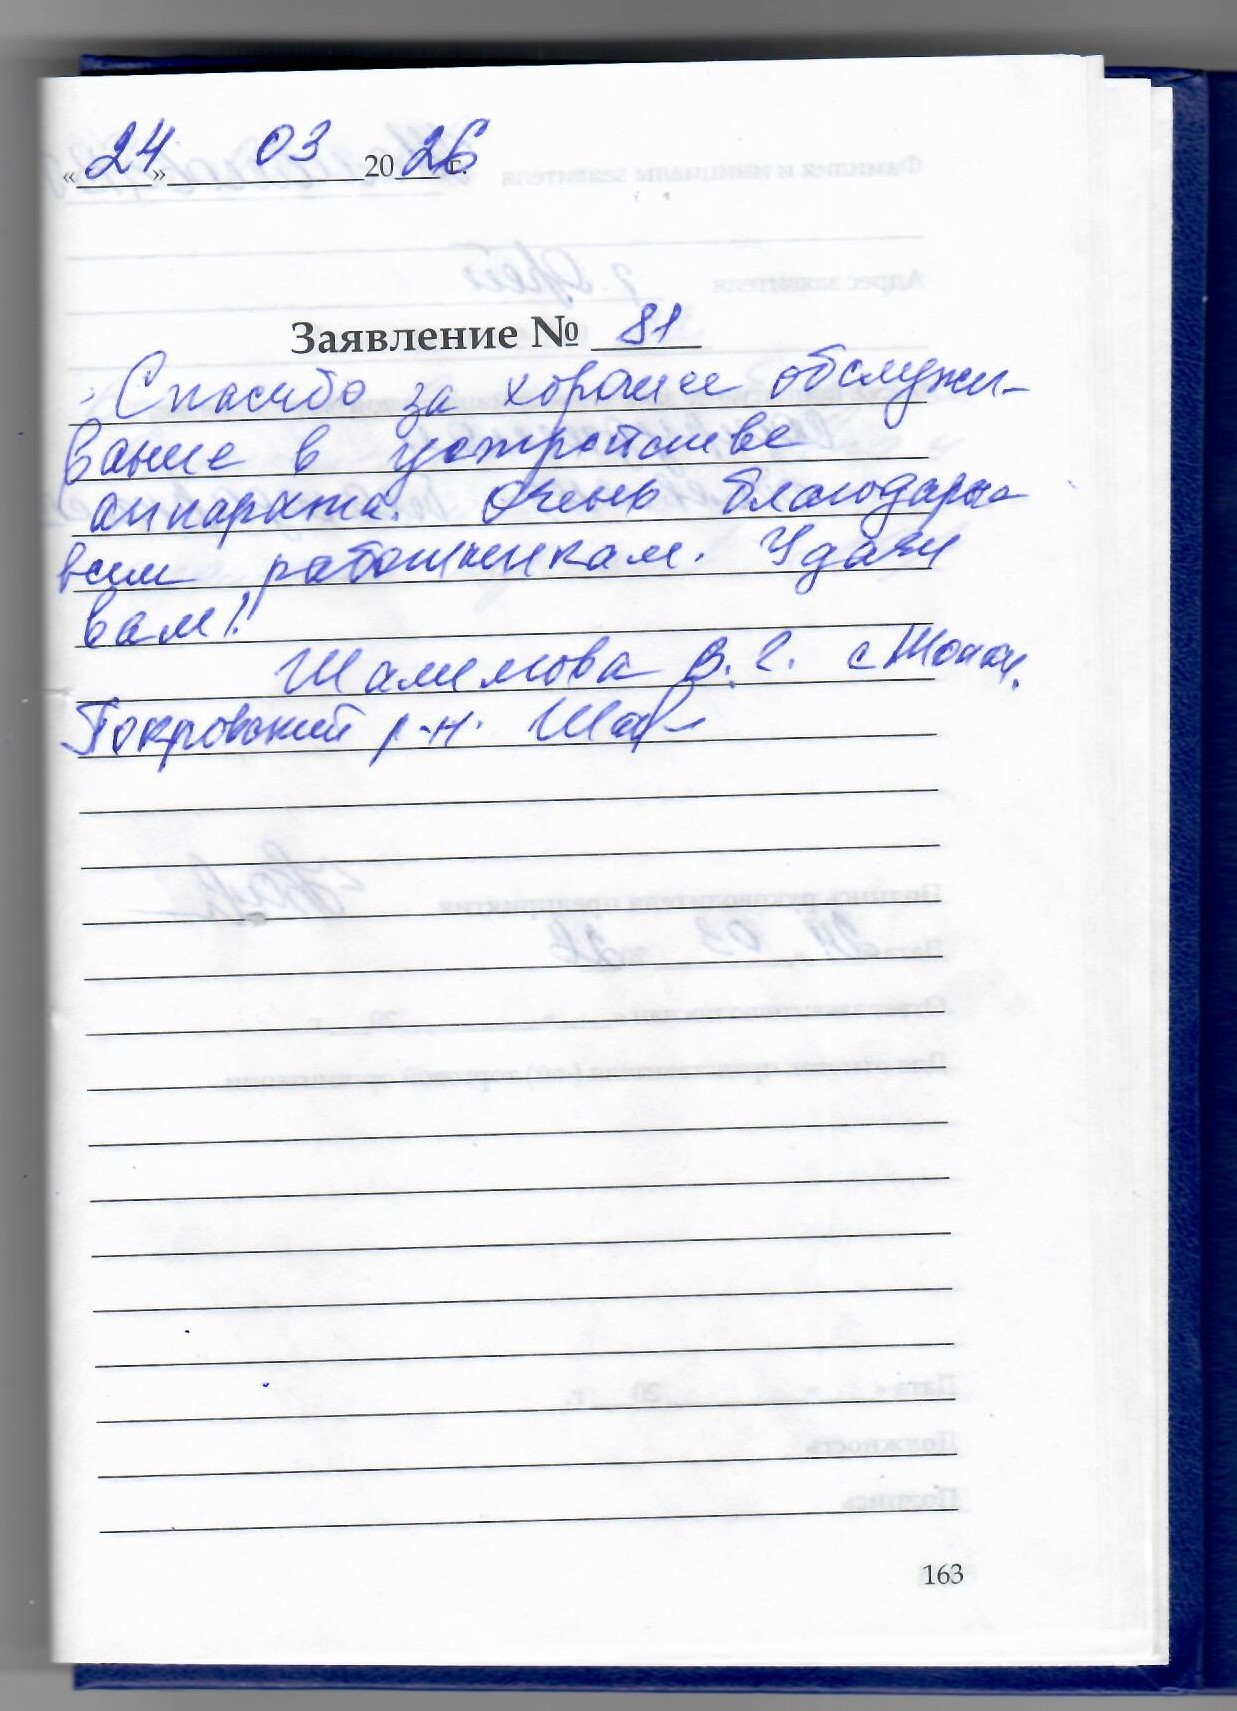 «24» 03 2026 г.
Заявление № 81
Спасибо за хорошее обслужи-
вание в устройстве
аппарата. Очень благодарна
всем работникам. Удачи
вам!!
В. С. с
Покровский р-н.
163